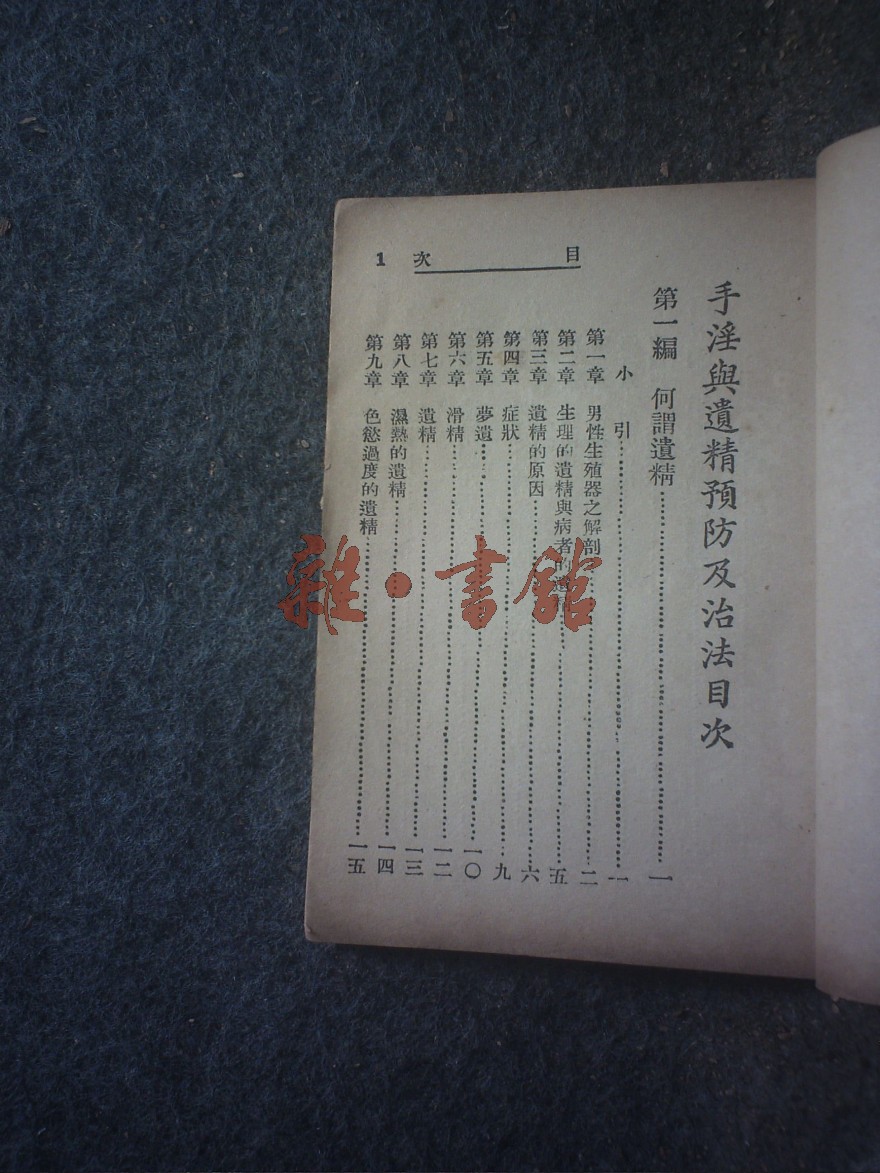 手淫與遺精預防及治法目次
第一編 何謂遺精……一
小引……一
第一章 男性生殖器之解剖……二
第二章 生理的遺精與病者的遺精……五
第三章 遺精的原因……六
第四章 症狀……九
第五章 夢遺……一〇
第六章 滑精……一二
第七章 遺精……一三
第八章 濕熱的遺精……一四
第九章 色慾過度的遺精……一五
目次 1
雜·書館